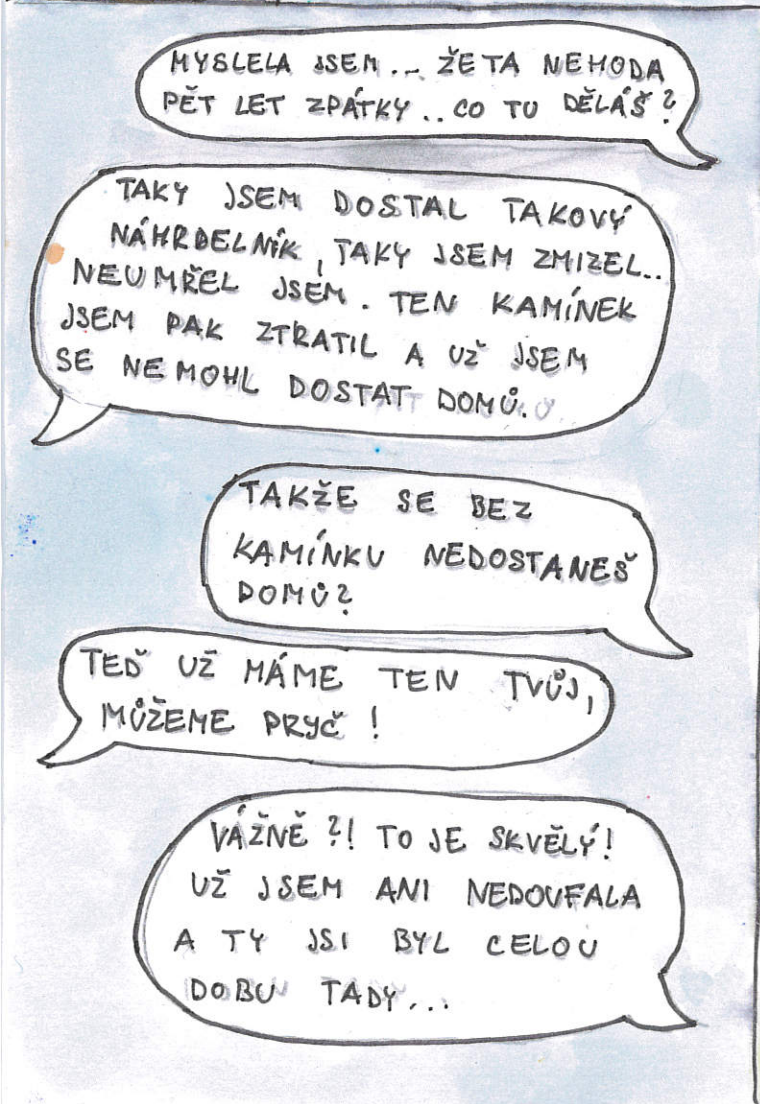 MYSLELA JSEM... ŽE TA NEHODA
PĚT LET ZPÁTKY.. CO TU DĚLÁŠ?
TAKY JSEM DOSTAL TAKOVÝ
NÁHRDELNÍK, TAKY JSEM ZMIZEL..
NEUMŘEL JSEM. TEN KAMÍNEK
JSEM PAK ZTRATIL A UŽ JSEM
SE NEMOHL DOSTAT DOMŮ.
TAKŽE SE BEZ
KAMÍNKU NEDOSTANEŠ
DOMŮ?
TEĎ UŽ MÁME TEN TVŮJ,
MŮŽEME PRYČ!
VÁŽNĚ?! TO JE SKVĚLÝ!
UŽ JSEM ANI NEDOUFALA
A TY JSI BYL CELOU
DOBU TADY...